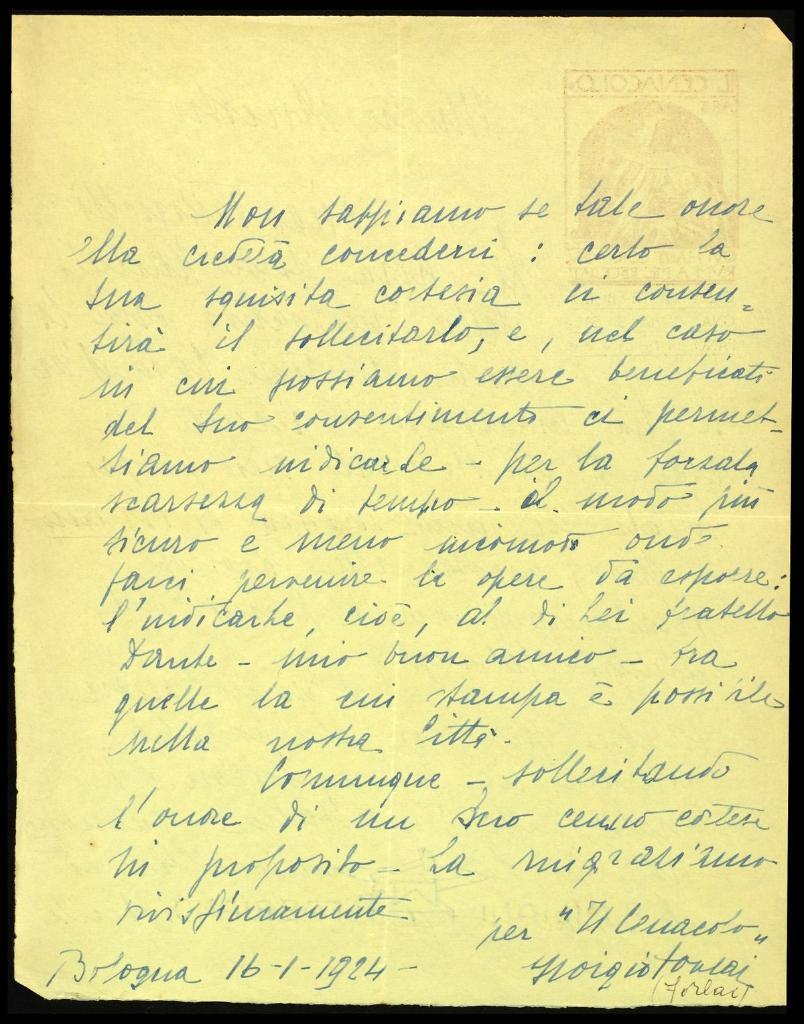 Non sappiamo se tale onore
Ella crederà concederci : certo la
Sua squisita cortesia ci consen=
tirà il sollecitarlo, e, nel caso
in cui possiamo essere beneficati
del Suo consentimento ci permet-
tiamo indicarle - per la forzata
scarsezza di tempo - il modo più
sicuro e meno incomodo onde
farci pervenire le opere da esporre:
l'indicarle, cioè, al di Lei fratello
Dante - mio buon amico - tra
quelle la cui stampa è possibile
nella nostra Città.
Comunque - sollecitando
l'onore di un Suo cenno cortese
in proposito - La ringraziamo
vivissimamente
per "Il Cenacolo"
Bologna 16-1-1924 - Giorgio Forlai
(Forlai)
IL CENACOLO